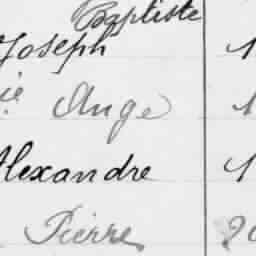 Baptiste
Joseph 1
ie Ange 1
Alexandre 1
Pierre